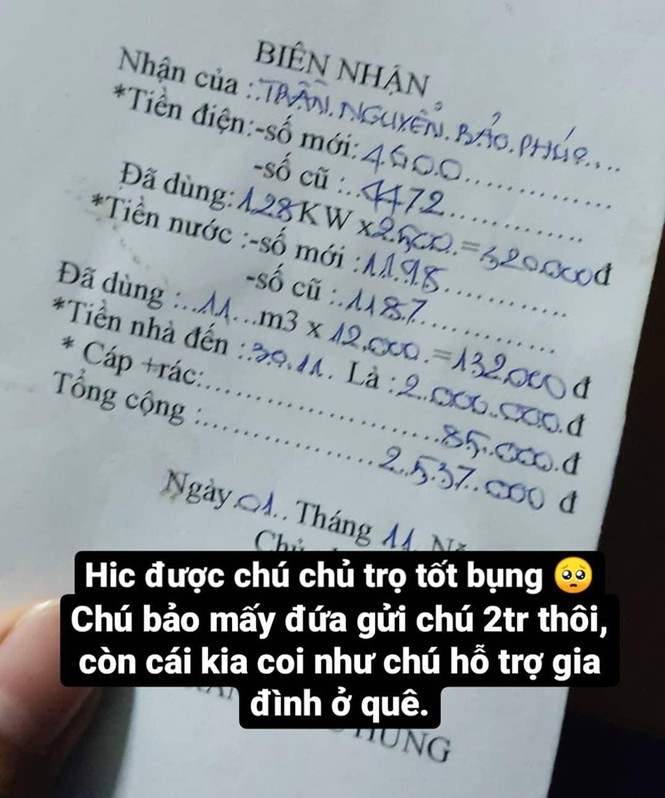 BIÊN NHẬN
Nhận của : TRẦN. NGUYỄN. BẢO. PHÚC....
*Tiền điện:-số mới: 4600..................
-số cũ :..4472..................
Đã dùng: 128 KW x 2.500. = 320.000đ
*Tiền nước :-số mới : 1198..................
-số cũ :.. 1187..................
Đã dùng :...11...m3 x 12.000. = 132.000 đ
*Tiền nhà đến : 30.11. Là : 2.000.000.đ
* Cáp +rác:..................85.000.đ
Tổng cộng :..................2.537.000 đ
Ngày 01.. Tháng 11
Hic được chú chủ trọ tốt bụng 🥺
Chú bảo mấy đứa gửi chú 2tr thôi,
còn cái kia coi như chú hỗ trợ gia
đình ở quê.
HÙNG